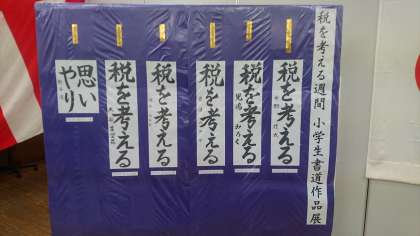 税を考える週間 小学生書道作品展
税を考える
税を考える
税を考える
税を考える
税を考える
思い
やり